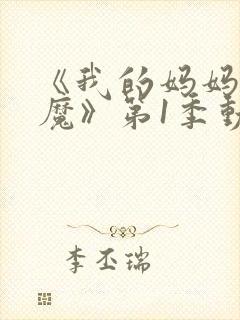 《我的妈妈
魔》第1季動
李丕瑞